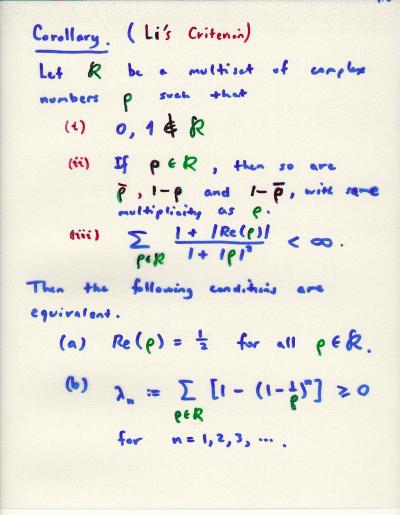 Corollary. (Li's Criterion)
Let R be a multiset of complex
numbers ρ such that
(i) 0, 1 ∉ R
(ii) If ρ ∈ R, then so are
ρ̄, 1-ρ and 1-ρ̄, with same
multiplicity as ρ.
(iii) ∑_{ρ∈R} (1 + |Re(ρ)|) / (1 + |ρ|²) < ∞.
Then the following conditions are
equivalent.
(a) Re(ρ) = 1/2 for all ρ ∈ R.
(b) λₙ := ∑_{ρ∈R} [1 - (1 - 1/ρ)ⁿ] ≥ 0
for n = 1, 2, 3, ....